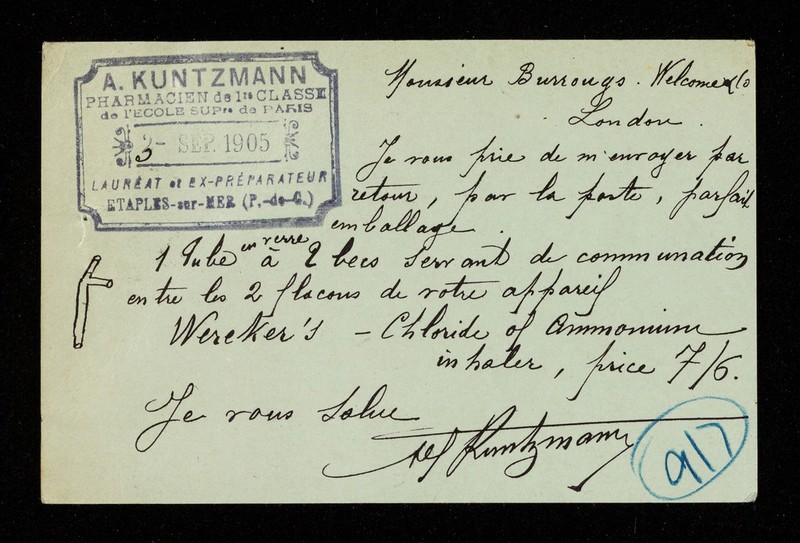 A. KUNTZMANN
PHARMACIEN de 1re CLASSE
de l'ECOLE SUPre de PARIS
3- SEP. 1905
LAURÉAT et EX-PRÉPARATEUR
ETAPLES-sur-MER (P.-de-C.)
Monsieur Burrougs. Welcome & Co
London.
Je vous prie de m'envoyer par
retour, par la poste, parfait
emballage.
1 tube en verre à 2 becs servant de communation
entre les 2 flacons de votre appareil
Wereker's - Chloride of Ammonium
inhaler, price 7/6.
Je vous salue
Kuntzmann
917